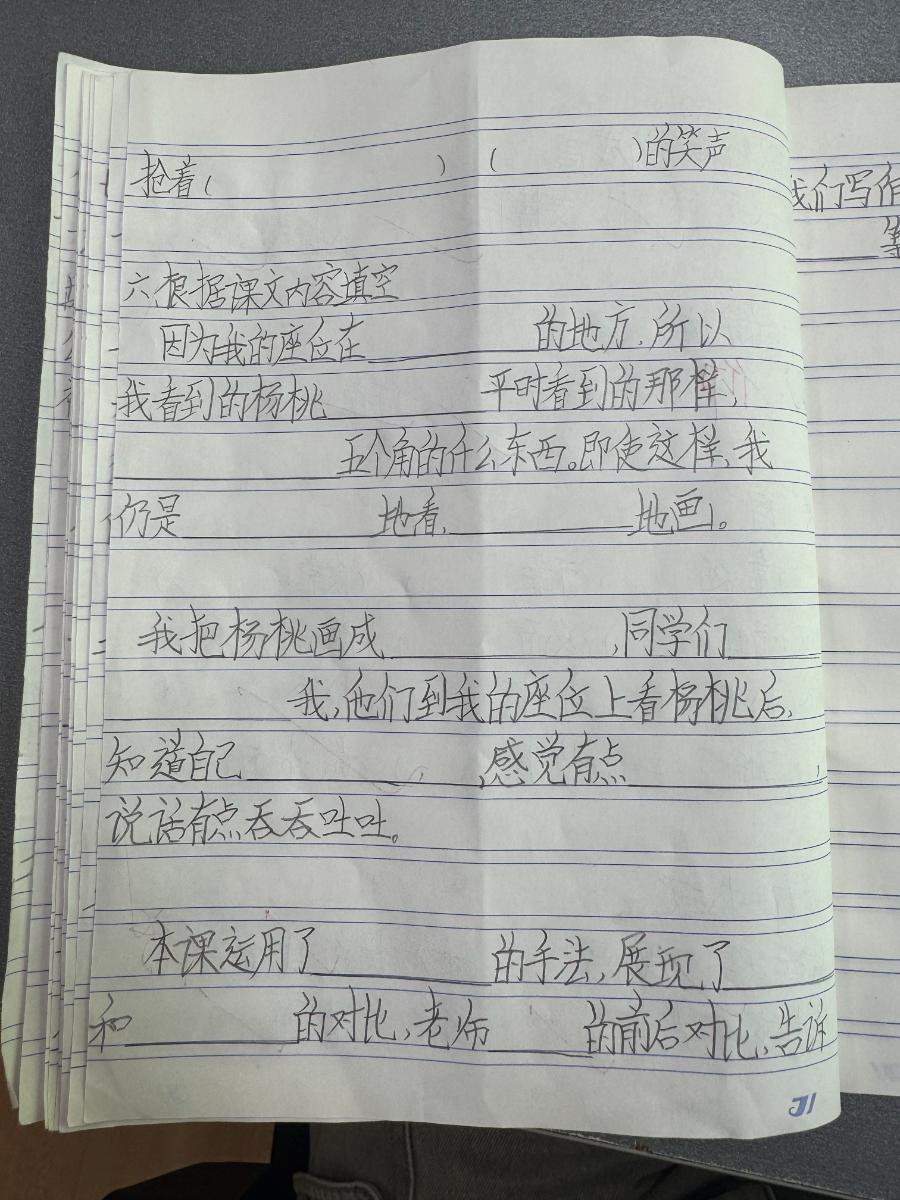 抢着(                    )  (              )的笑声
六.根据课文内容填空
因为我的座位在__________的地方,所以
我看到的杨桃__________平时看到的那样,
______________五个角的什么东西。即使这样,我
仍是____________地看,____________地画。
我把杨桃画成______________,同学们______
____________我,他们到我的座位上看杨桃后,
知道自己______________,感觉有点____________,
说话有点吞吞吐吐。
本课运用了___________的手法,展现了_______
和__________的对比,老师______的前后对比,告诉
31
我们写作
______等